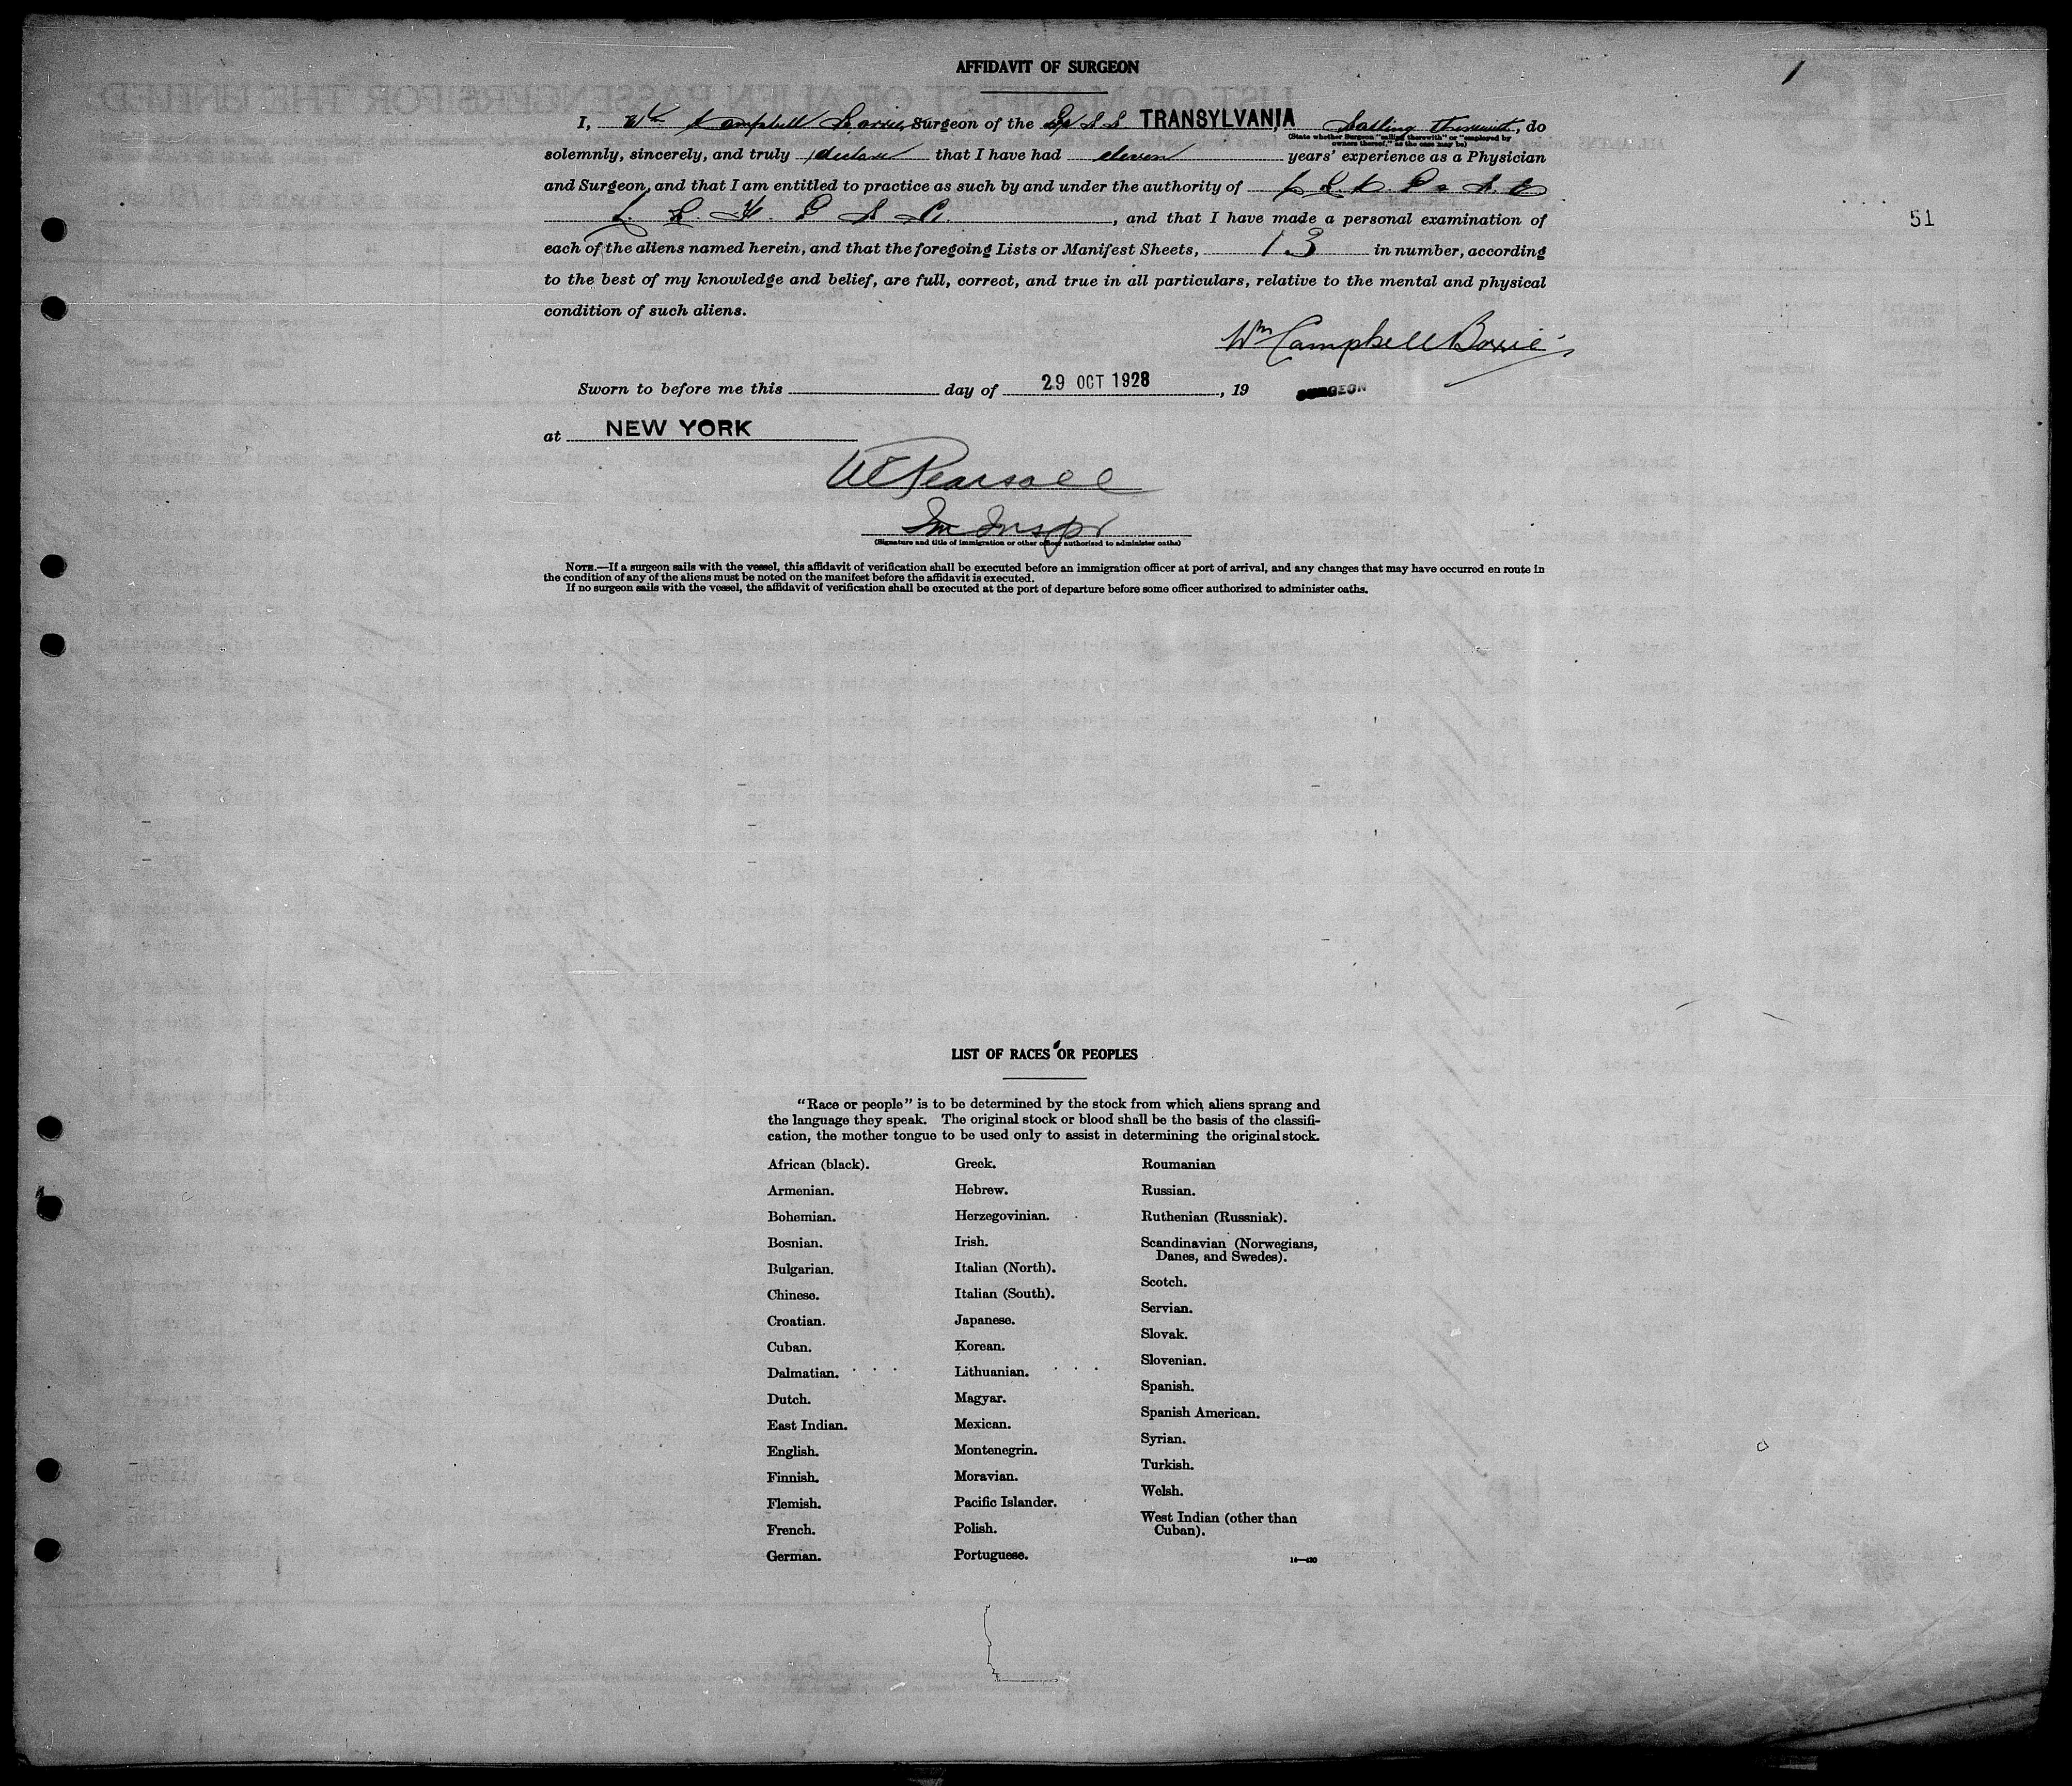 1
AFFIDAVIT OF SURGEON
I, Wm Campbell Borrie, Surgeon of the TRANSYLVANIA Sailing therewith, do
(State whether Surgeon "sailing therewith" or "employed by
owners thereof," as the case may be)
solemnly, sincerely, and truly declare that I have had eleven years' experience as a Physician
and Surgeon, and that I am entitled to practice as such by and under the authority of
, and that I have made a personal examination of
51
each of the aliens named herein, and that the foregoing Lists or Manifest Sheets, 13 in number, according
to the best of my knowledge and belief, are full, correct, and true in all particulars, relative to the mental and physical
condition of such aliens.
Wm Campbell Borrie
Sworn to before me this day of 29 OCT 1928, 19
SURGEON
at NEW YORK
W C Pearsall
Im Inspr
(Signature and title of immigration or other officer authorized to administer oaths)
NOTE.—If a surgeon sails with the vessel, this affidavit of verification shall be executed before an immigration officer at port of arrival, and any changes that may have occurred en route in
the condition of any of the aliens must be noted on the manifest before the affidavit is executed.
If no surgeon sails with the vessel, the affidavit of verification shall be executed at the port of departure before some officer authorized to administer oaths.
LIST OF RACES OR PEOPLES
"Race or people" is to be determined by the stock from which aliens sprang and
the language they speak. The original stock or blood shall be the basis of the classifi-
cation, the mother tongue to be used only to assist in determining the original stock.
African (black).
Armenian.
Bohemian.
Bosnian.
Bulgarian.
Chinese.
Croatian.
Cuban.
Dalmatian.
Dutch.
East Indian.
English.
Finnish.
Flemish.
French.
German.
Greek.
Hebrew.
Herzegovinian.
Irish.
Italian (North).
Italian (South).
Japanese.
Korean.
Lithuanian.
Magyar.
Mexican.
Montenegrin.
Moravian.
Pacific Islander.
Polish.
Portuguese.
Roumanian
Russian.
Ruthenian (Russniak).
Scandinavian (Norwegians,
Danes, and Swedes).
Scotch.
Servian.
Slovak.
Slovenian.
Spanish.
Spanish American.
Syrian.
Turkish.
Welsh.
West Indian (other than
Cuban).
14—430